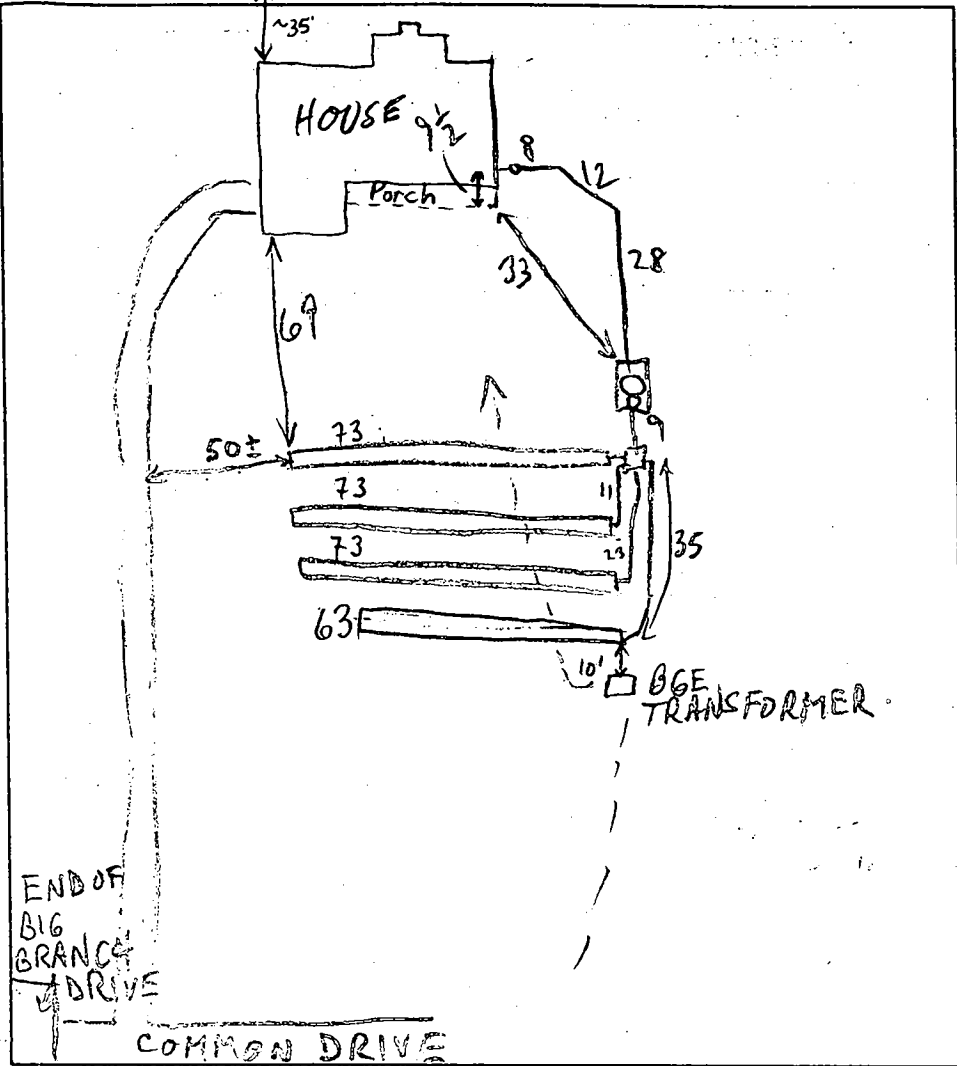 ~35'
HOUSE
9 1/2
Porch
8
12
28
33
69
9
50±
73
11
73
23
73
35
63
10'
BGE
TRANSFORMER.
END OF
BIG
BRANCH
DRIVE
COMMON DRIVE